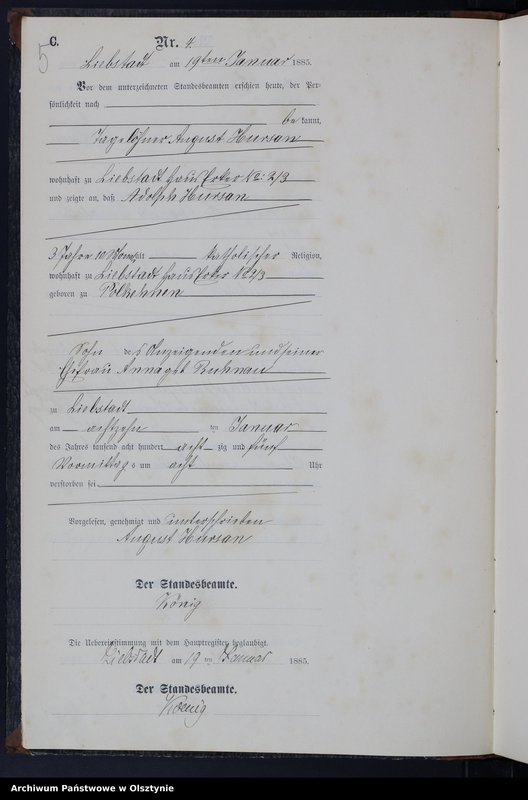 5 C.
Nr. 4.
Liebstadt am 19ten Januar 1885.
Vor dem unterzeichneten Standesbeamten erschien heute, der Per-
sönlichkeit nach
be kannt,
Tagelöhner August Hursan
wohnhaft zu Liebstadt Haus No: 2/3
und zeigte an, daß Adolph Hursan
3 Jahre 10 Monat alt katholischer Religion,
wohnhaft zu Liebstadt Haus No 2/3
geboren zu
Sohn des Anzeigenden und seiner
Ehefrau Anna geb.
zu Liebstadt
am achtzehn ten Januar
des Jahres tausend acht hundert acht zig und fünf
Vormittags um acht Uhr
verstorben sei
Vorgelesen, genehmigt und unterschrieben
August Hursan
Der Standesbeamte.
König
Die Uebereinstimmung mit dem Hauptregister beglaubigt.
Liebstadt am 19 ten Januar 1885.
Der Standesbeamte.
Koenig
Archiwum Państwowe w Olsztynie